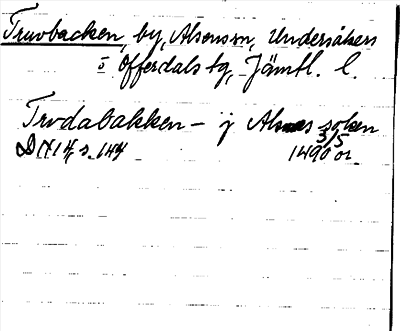 Truvbacken, by, Alsens sn, Undersåkers
o Offerdals tg, Jämtl. l.
Trvdabakken – j Alsnes soken
DN 14 s. 144 1490 3/5 or.